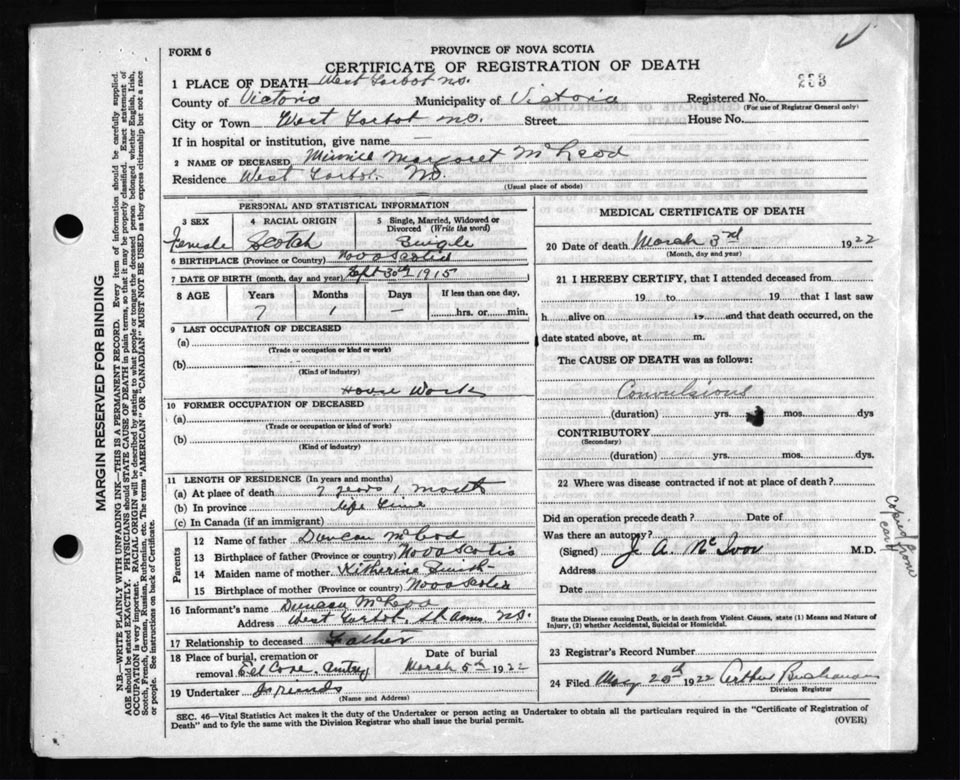 FORM 6
PROVINCE OF NOVA SCOTIA
CERTIFICATE OF REGISTRATION OF DEATH
1 PLACE OF DEATH West Tarbot N.S.
County of Victoria Municipality of Victoria Registered No. 233
(For use of Registrar General only)
City or Town West Tarbot N.S. Street House No.
If in hospital or institution, give name —
2 NAME OF DECEASED Minnie Margaret McLeod
Residence West Tarbot. N.S.
(Usual place of abode)
PERSONAL AND STATISTICAL INFORMATION
3 SEX 4 RACIAL ORIGIN 5 Single, Married, Widowed or Divorced (Write the word)
Female Scotch Single
6 BIRTHPLACE (Province or Country) Nova Scotia
7 DATE OF BIRTH (month, day and year) Sept 30th 1915
8 AGE Years Months Days If less than one day,
7 1 — hrs. or min.
9 LAST OCCUPATION OF DECEASED
(a)
(Trade or occupation or kind or work)
(b)
(Kind of industry)
House Work
10 FORMER OCCUPATION OF DECEASED
(a)
(Trade or occupation or kind of work)
(b)
(Kind of industry)
11 LENGTH OF RESIDENCE (In years and months)
(a) At place of death 7 years 1 month
(b) In province life time
(c) In Canada (if an immigrant)
Parents
12 Name of father Duncan McLeod
13 Birthplace of father (Province or country) Nova Scotia
14 Maiden name of mother Katherine
15 Birthplace of mother (Province or country) Nova Scotia
16 Informant's name Duncan McLeod
Address West Tarbot, St Anns N.S.
17 Relationship to deceased Father
18 Place of burial, cremation or removal Date of burial
Eel Cove March 5th 1922
19 Undertaker Friends
(Name and Address)
MEDICAL CERTIFICATE OF DEATH
20 Date of death March 3rd 1922
(Month, day and year)
21 I HEREBY CERTIFY, that I attended deceased from
19 to 19 that I last saw
h alive on 19 and that death occurred, on the
date stated above, at m.
The CAUSE OF DEATH was as follows:
Convulsions
(duration) yrs. mos. dys
CONTRIBUTORY
(Secondary)
(duration) yrs. mos. dys.
22 Where was disease contracted if not at place of death?
Did an operation precede death? Date of
Was there an autopsy?
(Signed) J. A. McIvor M.D.
Address
Date
State the Disease causing Death, or in death from Violent Causes, state (1) Means and Nature of Injury, (2) whether Accidental, Suicidal or Homicidal.
23 Registrar's Record Number
24 Filed May 20th 1922 Arthur Buchanan
Division Registrar
SEC. 46—Vital Statistics Act makes it the duty of the Undertaker or person acting as Undertaker to obtain all the particulars required in the "Certificate of Registration of
Death" and to fyle the same with the Division Registrar who shall issue the burial permit.
(OVER)
MARGIN RESERVED FOR BINDING
N.B.—WRITE PLAINLY WITH UNFADING INK—THIS IS A PERMANENT RECORD. Every item of information should be carefully supplied.
AGE should be stated EXACTLY. PHYSICIANS should STATE CAUSE OF DEATH in plain terms, so that it may be properly classified. Exact statement of
OCCUPATION is very important. RACIAL ORIGIN will be described by stating to what people or tongue the deceased person belonged whether English, Irish,
Scotch, French, German, Russian, Ruthenian, etc. The terms "AMERICAN" OR "CANADIAN" MUST NOT BE USED as they express citizenship but not a race
or people. See instructions on back of Certificate.
copied from card